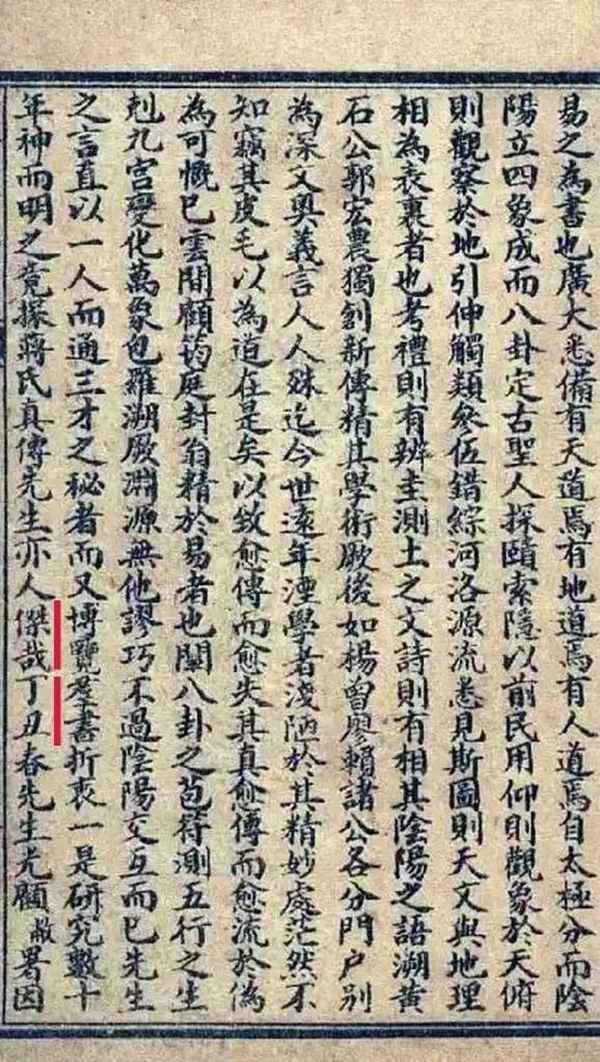 易之為書也廣大悉備有天道焉有地道焉有人道焉自太極分而陰
陽立四象成而八卦定古聖人探賾索隱以前民用仰則觀象於天俯
則觀察於地引伸觸類參伍錯綜河洛源流悉見斯圖則天文與地理
相為表裏者也考禮則有辨圭測土之文詩則有相其陰陽之語溯黄
石公郭宏農獨創新傳精其學術厥後如楊曾廖賴諸公各分門户別
為深文奥義言人人殊迄今世遠年湮學者淺陋於其精妙處茫然不
知竊其皮毛以為道在是矣以致愈傳而愈失其真愈傳而愈流於偽
為可慨已雲間顧筠庭封翁精於易者也闡八卦之苞符測五行之生
剋九宫變化萬象包羅溯厥淵源無他謬巧不過陰陽交互而已先生
之言直以一人而通三才之秘者而又博覽羣書折衷一是研究數十
年神而明之竟探蔣氏真傳先生亦人傑哉丁丑春先生光顧敝署因